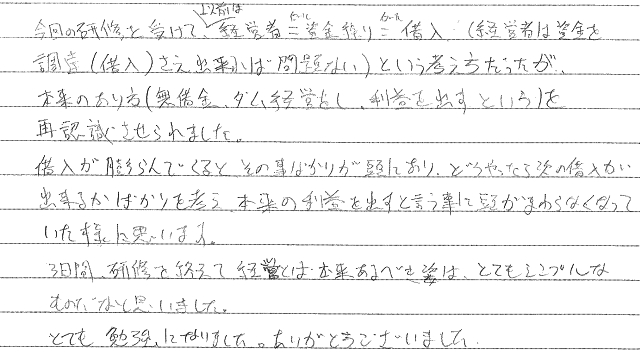 今回の研修を受けて、以前は経営者＝イコール資金繰り＝イコール借入(経営者は資金を
調達(借入)さえ出来れば問題ない)という考え方だったが、
本来のあり方(無借金、ダム経営をし、利益を出すという)を
再認識させられました。
借入が膨らんでくるとその事ばかりが頭にあり、どうやったら次の借入が
出来るかばかりを考え、本来の利益を出すと言う事に頭がまわらなくなって
いた様に思います。
3日間、研修を終えて経営とは本来あるべき姿は、とてもシンプルな
ものだなと思いました。
とても勉強になりました。ありがとうございました。